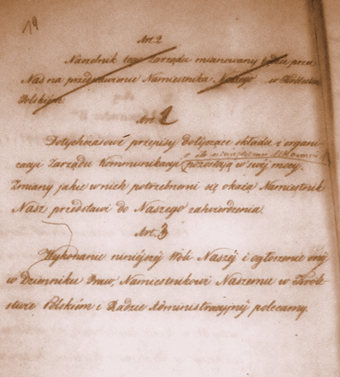 19
Art. 2
Naczelnik tego Zarządu mianowany będzie przez
Nas na przedstawienie Namiestnika Naszego w Królestwie
Polskiem.
Art. 2
Dotychczasowe przepisy dotyczące składu i organi-
zacyi Zarządu Kommunikacyi pozostają w swej mocy.
Zmiany jakie w nich potrzebnemi się okażą Namiestnik
Nasz przedstawi do Naszego zatwierdzenia.
Art. 3
Wykonanie niniejszej Woli Naszej i ogłoszenie onej
w Dzienniku Praw, Namiestnikowi Naszemu w Króle-
stwie Polskiem i Radzie Administracyjnej polecamy.